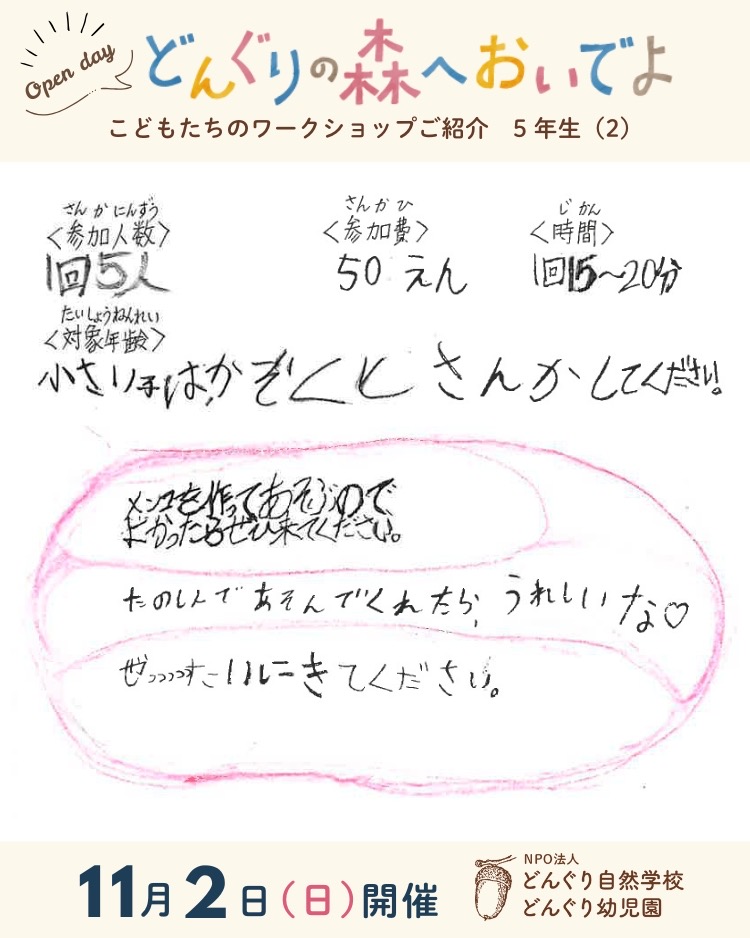 Open day
どんぐりの森へおいでよ
こどもたちのワークショップご紹介　5年生（2）
さんかにんずう
〈参加人数〉
1回5人
さんかひ
〈参加費〉
50えん
じかん
〈時間〉
1回15〜20分
たいしょうねんれい
〈対象年齢〉
小さい子は、かぞくとさんかしてください。
メンコを作ってあそぶので
よかったらぜひ来てください。
たのしんであそんでくれたら、うれしいな♡
ぜっっっったいにきてください。
11月2日（日）開催
NPO法人
どんぐり自然学校
どんぐり幼児園